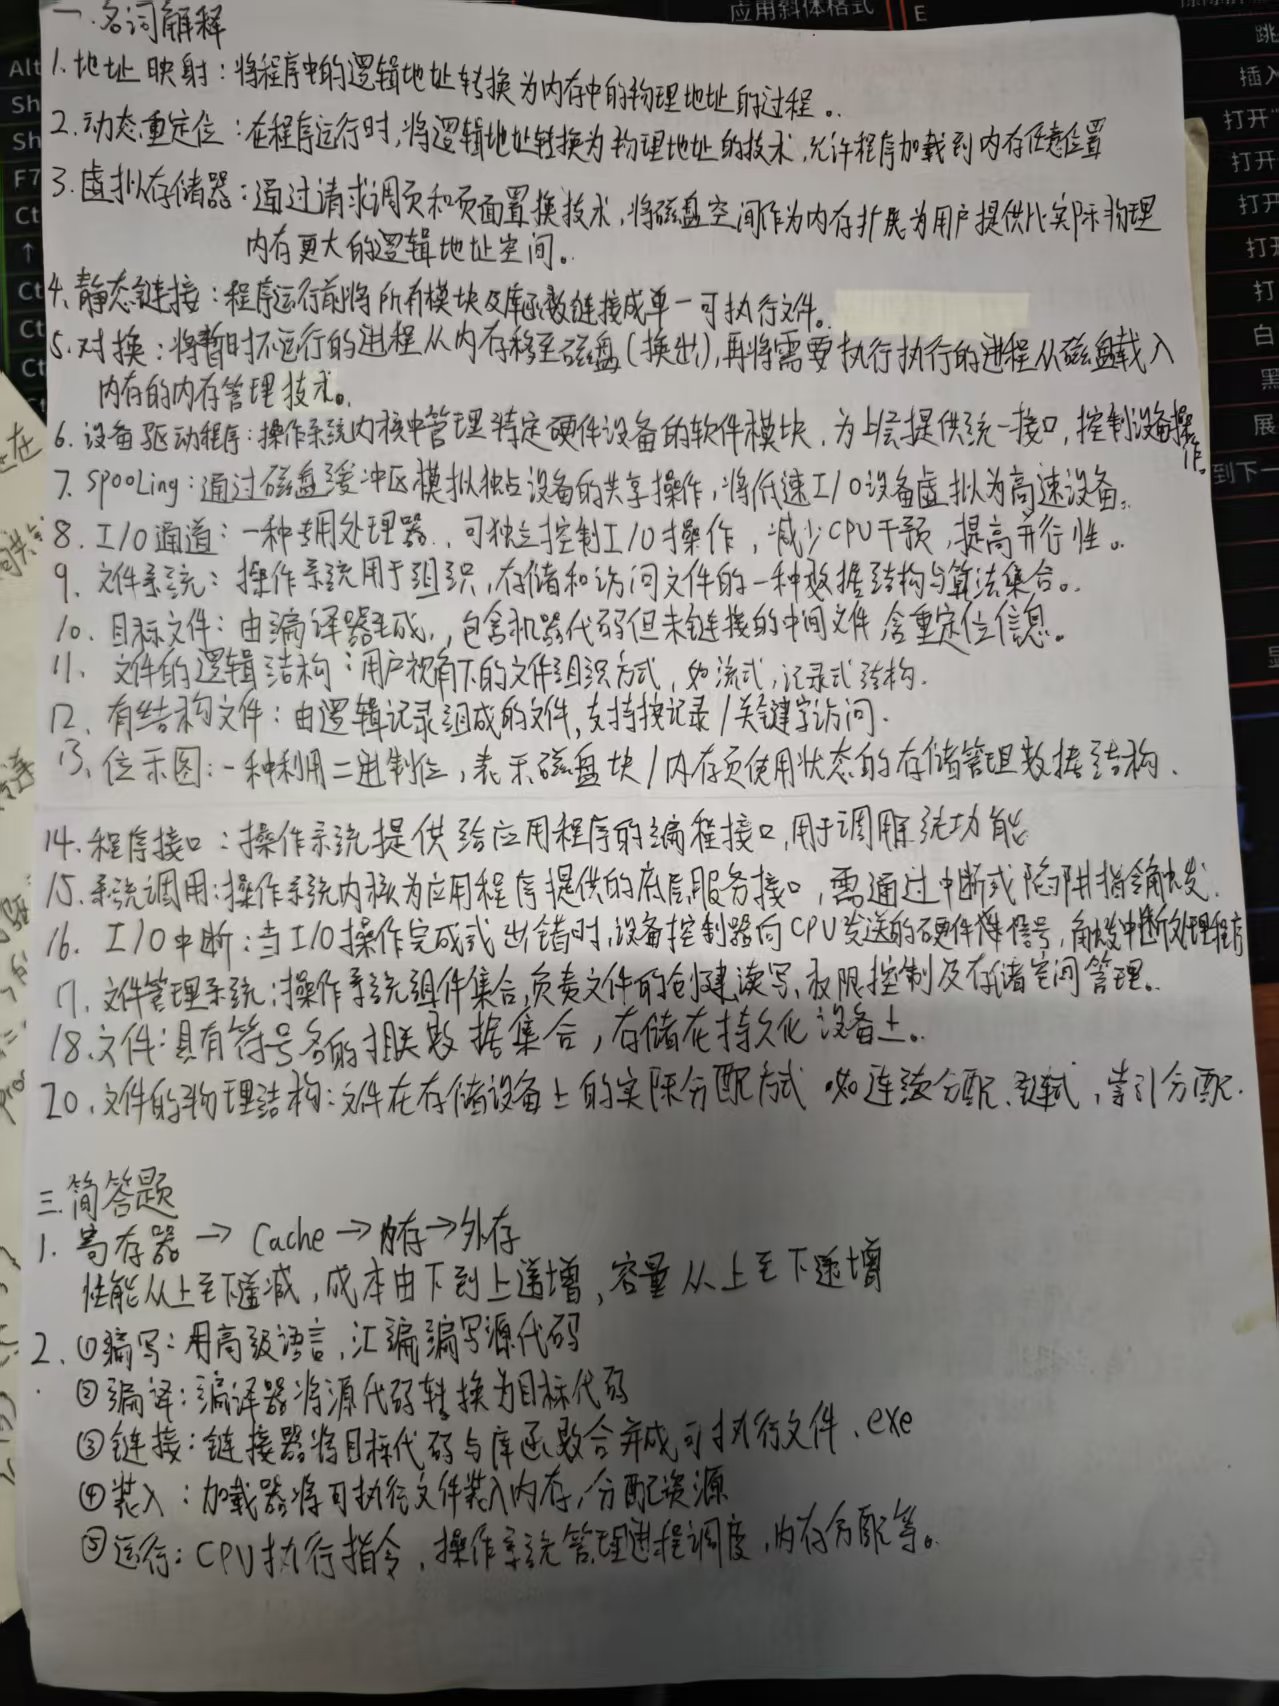 一.名词解释
1.地址映射：将程序中的逻辑地址转换为内存中的物理地址的过程。
2.动态重定位：在程序运行时，将逻辑地址转换为物理地址的技术，允许程序加载到内存任意位置
3.虚拟存储器：通过请求调页和页面置换技术，将磁盘空间作为内存扩展为用户提供比实际物理
内存更大的逻辑地址空间。
4.静态链接：程序运行前将所有模块及库函数链接成单一可执行文件。
5.对换：将暂时不运行的进程从内存移至磁盘(换出)，再将需要执行执行的进程从磁盘载入
内存的内存管理技术。
6.设备驱动程序：操作系统内核中管理特定硬件设备的软件模块，为上层提供统一接口，控制设备操作。
7.SPOOLing：通过磁盘缓冲区模拟独占设备的共享操作，将低速I/O设备虚拟为高速设备。
8.I/O通道：一种专用处理器，可独立控制I/O操作，减少CPU干预，提高并行性。
9.文件系统：操作系统用于组织，存储和访问文件的一种数据结构与算法集合。
10.目标文件：由编译器生成，包含机器代码但未链接的中间文件 含重定位信息。
11.文件的逻辑结构：用户视角下的文件组织方式，如流式，记录式结构.
12.有结构文件：由逻辑记录组成的文件，支持按记录/关键字访问.
13.位示图：一种利用二进制位，表示磁盘块/内存页使用状态的存储管理数据结构.
14.程序接口：操作系统提供给应用程序的编程接口，用于调用系统功能
15.系统调用：操作系统内核为应用程序提供的底层服务接口，需通过中断或陷阱指令触发.
16.I/O中断：当I/O操作完成或出错时，设备控制器向CPU发送的硬件信号，触发中断处理程序
17.文件管理系统：操作系统组件集合，负责文件的创建、读写、权限控制及存储空间管理。
18.文件：具有符号名的相关数据集合，存储在持久化设备上。
20.文件的物理结构：文件在存储设备上的实际分配方式 如连续分配、链式，索引分配.
三.简答题
1.寄存器→Cache→内存→外存
性能从上至下递减，成本由下到上递增，容量从上至下递增
2.①编写：用高级语言，汇编编写源代码
②编译：编译器将源代码转换为目标代码
③链接：链接器将目标代码与库函数合并成可执行文件.exe
④装入：加载器将可执行文件装入内存，分配资源
⑤运行：CPU执行指令，操作系统管理进程调度，内存分配等。
应用斜体格式
E
跳
Alt
插入
Sh
打开
Sh
打开
F7
打开
Ct
↑
打
Ct
白
Ct
黑
Ct
展
到下一